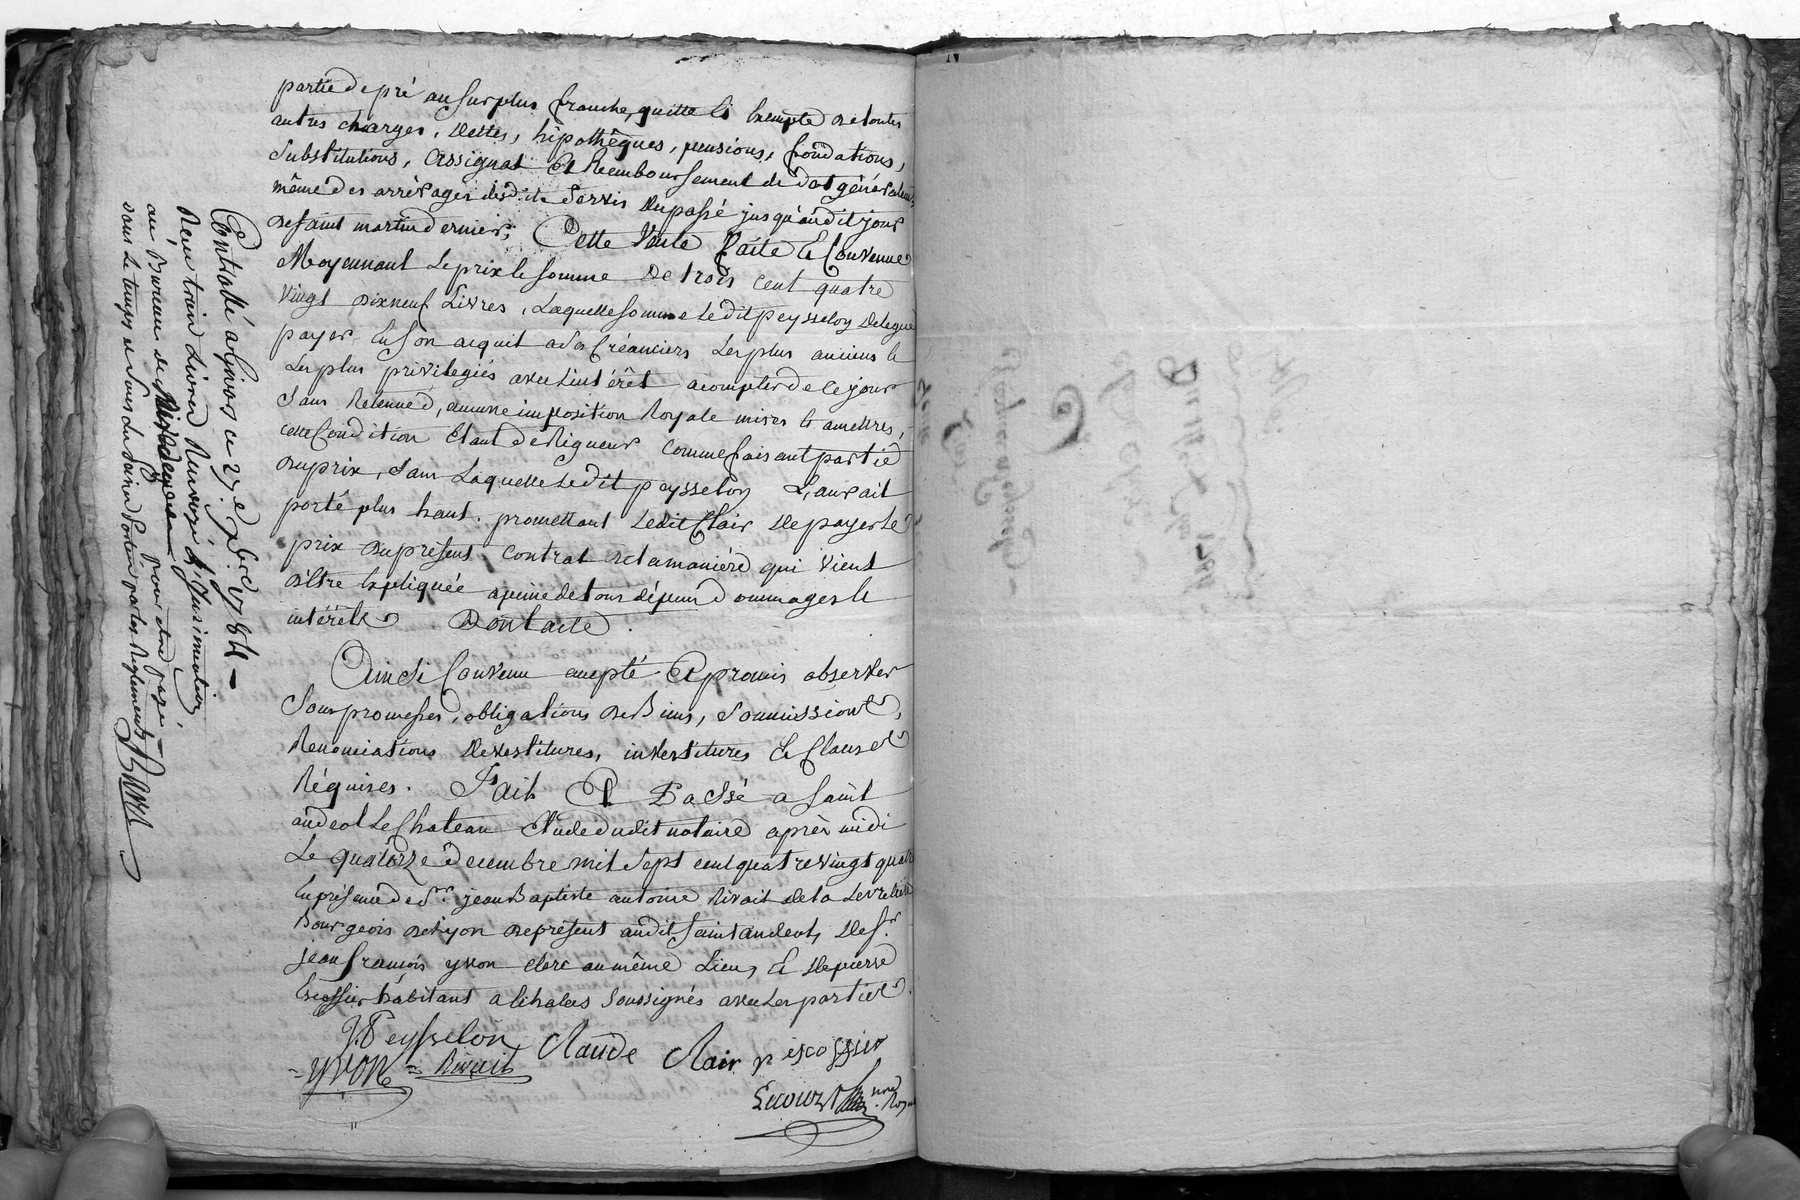 partie de pré au surplus franche, quitte & Exempte de toutes
autres charges, dettes, hipothèques, pensions, fondations,
substitutions, assignat Et Remboursement de dot généralement
même des arrérages desdits servis du passé jusqu'audit jour
de saint martin dernier; Cette Vente faite & Convenue
Moyennant le prix & somme de trois cent quatre
vingt dixneuf Livres, Laquelle somme ledit peysselon delegue
payer En son acquit a ses Créanciers les plus anciens &
les plus privilegiés avec l'intérêt a compter de ce jour
sans Retenue d'aucune imposition Royale mises & a mettres,
cette Condition Etant de Rigueur comme faisant partie
du prix, sans Laquelle ledit peysselon L'aurait
porté plus haut. promettant ledit Clair de payer le
prix du présent contrat de la manière qui vient
d'être Expliquée a peine de tous dépens dommages &
intérêts Dont acte.
Ainsi Convenu accepté Et promis observer
sous promesses, obligations de Biens, soumissions,
Renonciations devestitures, investitures & Clauses
Réquises. Fait Et Passé a saint
andeol le Chateau Etude dudit notaire après midi
Le quatorze decembre mil sept cent quatre vingt quatre
En présence de Sr. jean Baptiste antoine Rivait de la
Bourgeois de Lyon de présent audit saint andeol, de Sr.
jean françois yvon clerc au même Lieu, & de pierre
Escoffier habitant a Echalas soussignés avec les parties.
J. Peysselon Claude Clair p escoffier
yvon Rivait
Controllé a Givors ce 27e Xbre 1784
Reçu trois Livres Renvoyé pr. l'insinuation
au Bureau de pour etre payé
dans le temps et sous les peines portées par les Reglements